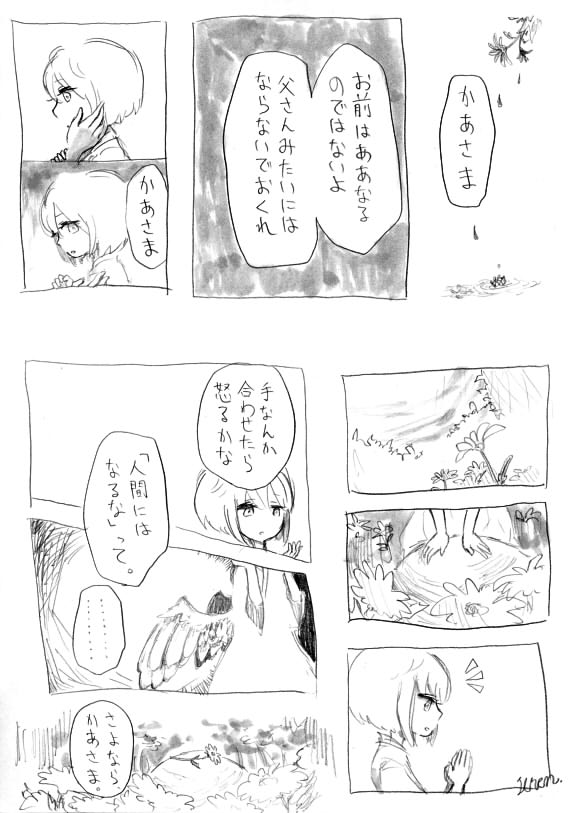 かあさま
お前はああなる
のではないよ
父さんみたいには
ならないでおくれ
かあさま
手なんか
合わせたら
怒るかな
「人間には
なるな」って。
………
さよなら
かあさま。